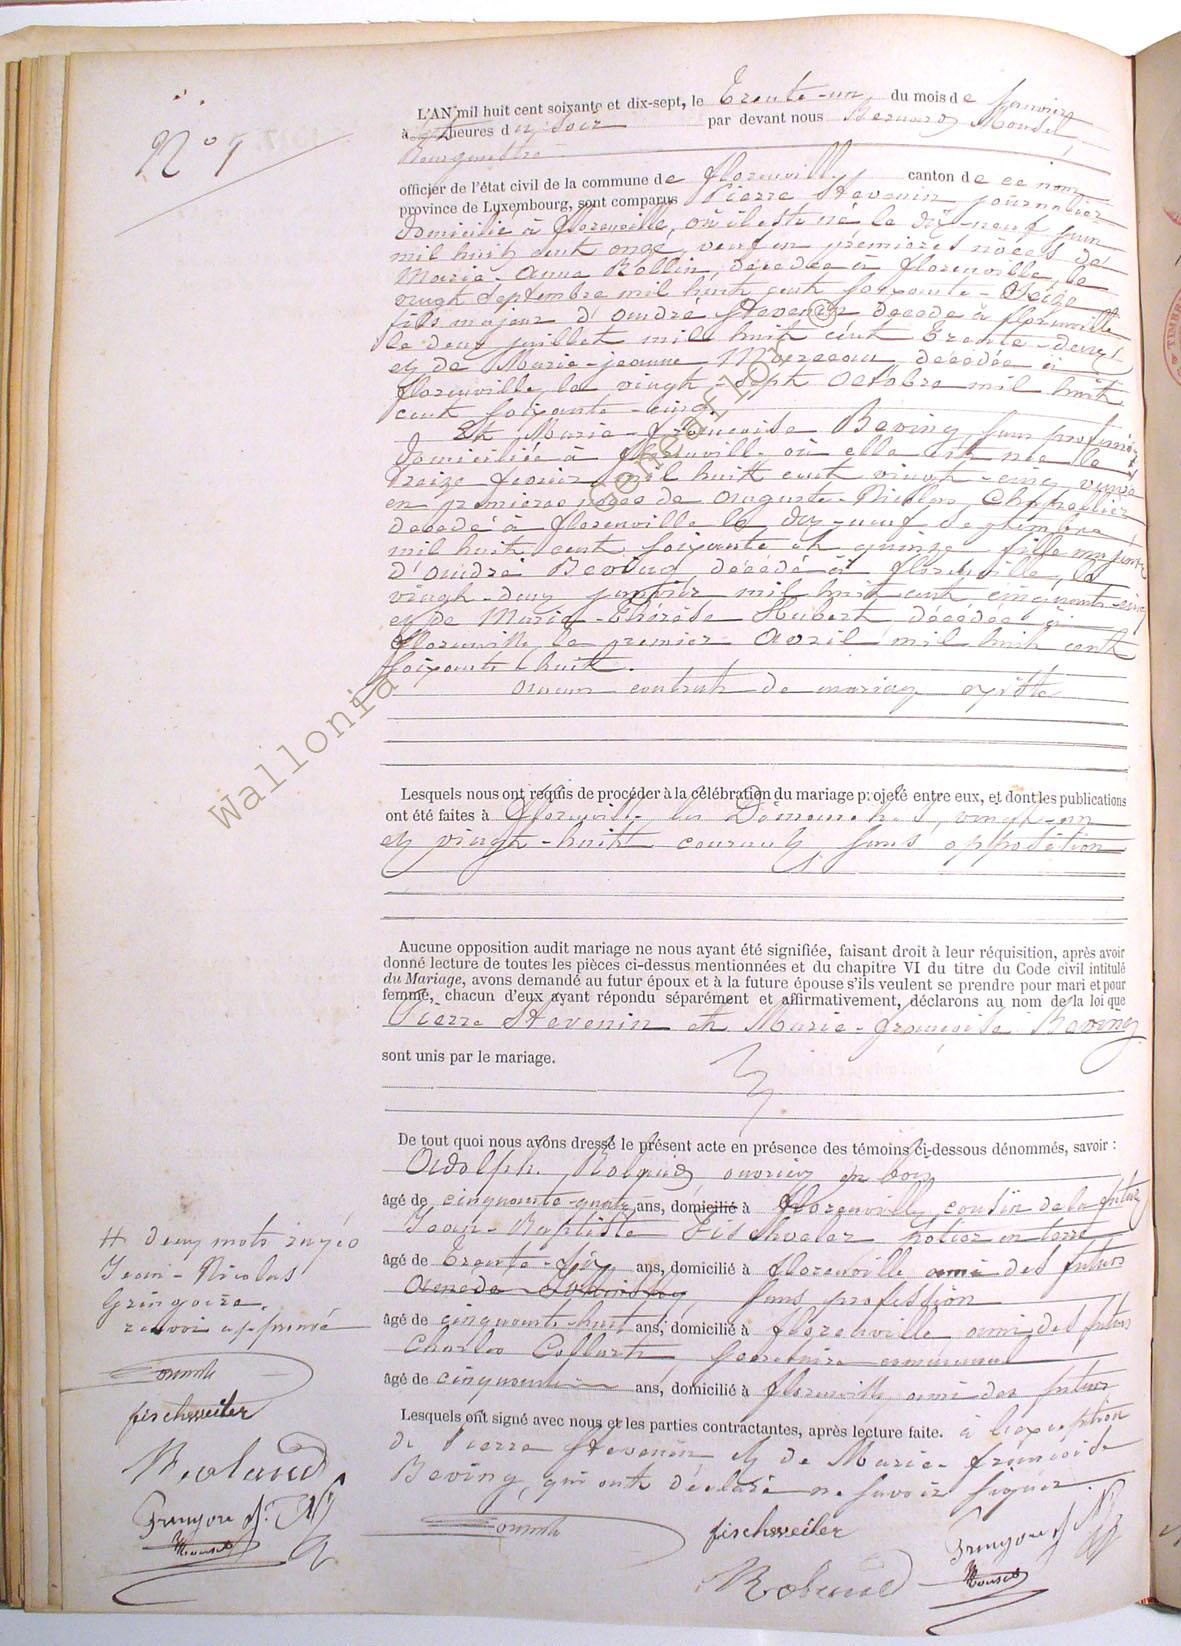 N° 1
L'AN mil huit cent soixante et dix-sept, le Trente-un, du mois de Janvier
à heures du soir par devant nous Bernard Mousel,
Bourgmestre
officier de l'état civil de la commune de florenville, canton de ce nom
province de Luxembourg, sont comparus Pierre Stevenin journalier
domicilié à florenville, où il est né le dix-neuf Juin
mil huit cent onze, veuf en premieres nôces de
Marie-Anne Rollin, décédée à florenville, le
vingt Septembre mil huit cent soixante-Seize
fils majeur d'André Stevenin décédé à florenville
le deux juillet mil huit cent Trente-deux
et de Marie-jeanne décédée à
florenville, le vingt-sept Octobre mil huit
cent soixante-cinq.
Et Marie-françoise Beving, sans profession,
domiciliée à florenville où elle est née le
Treize fevrier mil huit cent vingt-cinq, veuve
en premieres noces de Auguste-Nicolas
décédé à florenville le dix-neuf Septembre
mil huit cent soixante et quinze, fille majeure
d'André Beving décédé à florenville, le
vingt-deux janvier mil huit cent cinquante-cinq
et de Marie-Thérèse Hubert décédée à
florenville le premier Avril mil huit cent
soixante huit.
Aucun contrat de mariage existe
Lesquels nous ont requis de procéder à la célébration du mariage projeté entre eux, et dont les publications
ont été faites à florenville les Dimanches, vingt-un
et vingt-huit courant, sans opposition
Aucune opposition audit mariage ne nous ayant été signifiée, faisant droit à leur réquisition, après avoir
donné lecture de toutes les pièces ci-dessus mentionnées et du chapitre VI du titre du Code civil intitulé
du Mariage, avons demandé au futur époux et à la future épouse s'ils veulent se prendre pour mari et pour
femme, chacun d'eux ayant répondu séparément et affirmativement, déclarons au nom de la loi que
Pierre Stevenin et Marie-françoise Beving
sont unis par le mariage.
De tout quoi nous avons dressé le présent acte en présence des témoins ci-dessous dénommés, savoir :
Adolphe ouvrier en bois
âgé de cinquante-quatre ans, domicilié à florenville, cousin de la future
Jean-Baptiste potier en terre
âgé de Trente-Six ans, domicilié à florenville ami des futurs
sans profession
âgé de cinquante-huit ans, domicilié à florenville ami des futurs
Charles Collart, Secrétaire communal
âgé de cinquante ans, domicilié à florenville ami des futurs
Lesquels ont signé avec nous et les parties contractantes, après lecture faite. à l'exception
de Pierre Stevenin et de Marie-françoise
Beving, qui ont déclaré ne savoir signer.
# deux mots rayés
Jean-Nicolas
Gringoire,
renvoi approuvé
fischweiler
Roland
Mousel
fischweiler
Roland
Mousel
Wallonia © Geneaflor